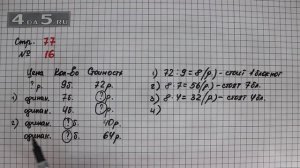 4DA5.RU
Стр. 77
№ 16
Цена Кол-во Стоимость
? р. 9б. 72р.
1) одинак. 7б. ? р.
одинак. 4б. ? р.
2) одинак. ? б. 40р.
одинак. ? б. 64р.
1) 72:9=8(р.)-стоит 1 блокнот
2) 8·7=56(р.)-стоят 7бл.
3) 8·4=32(р.)-стоят 4бл.
4)